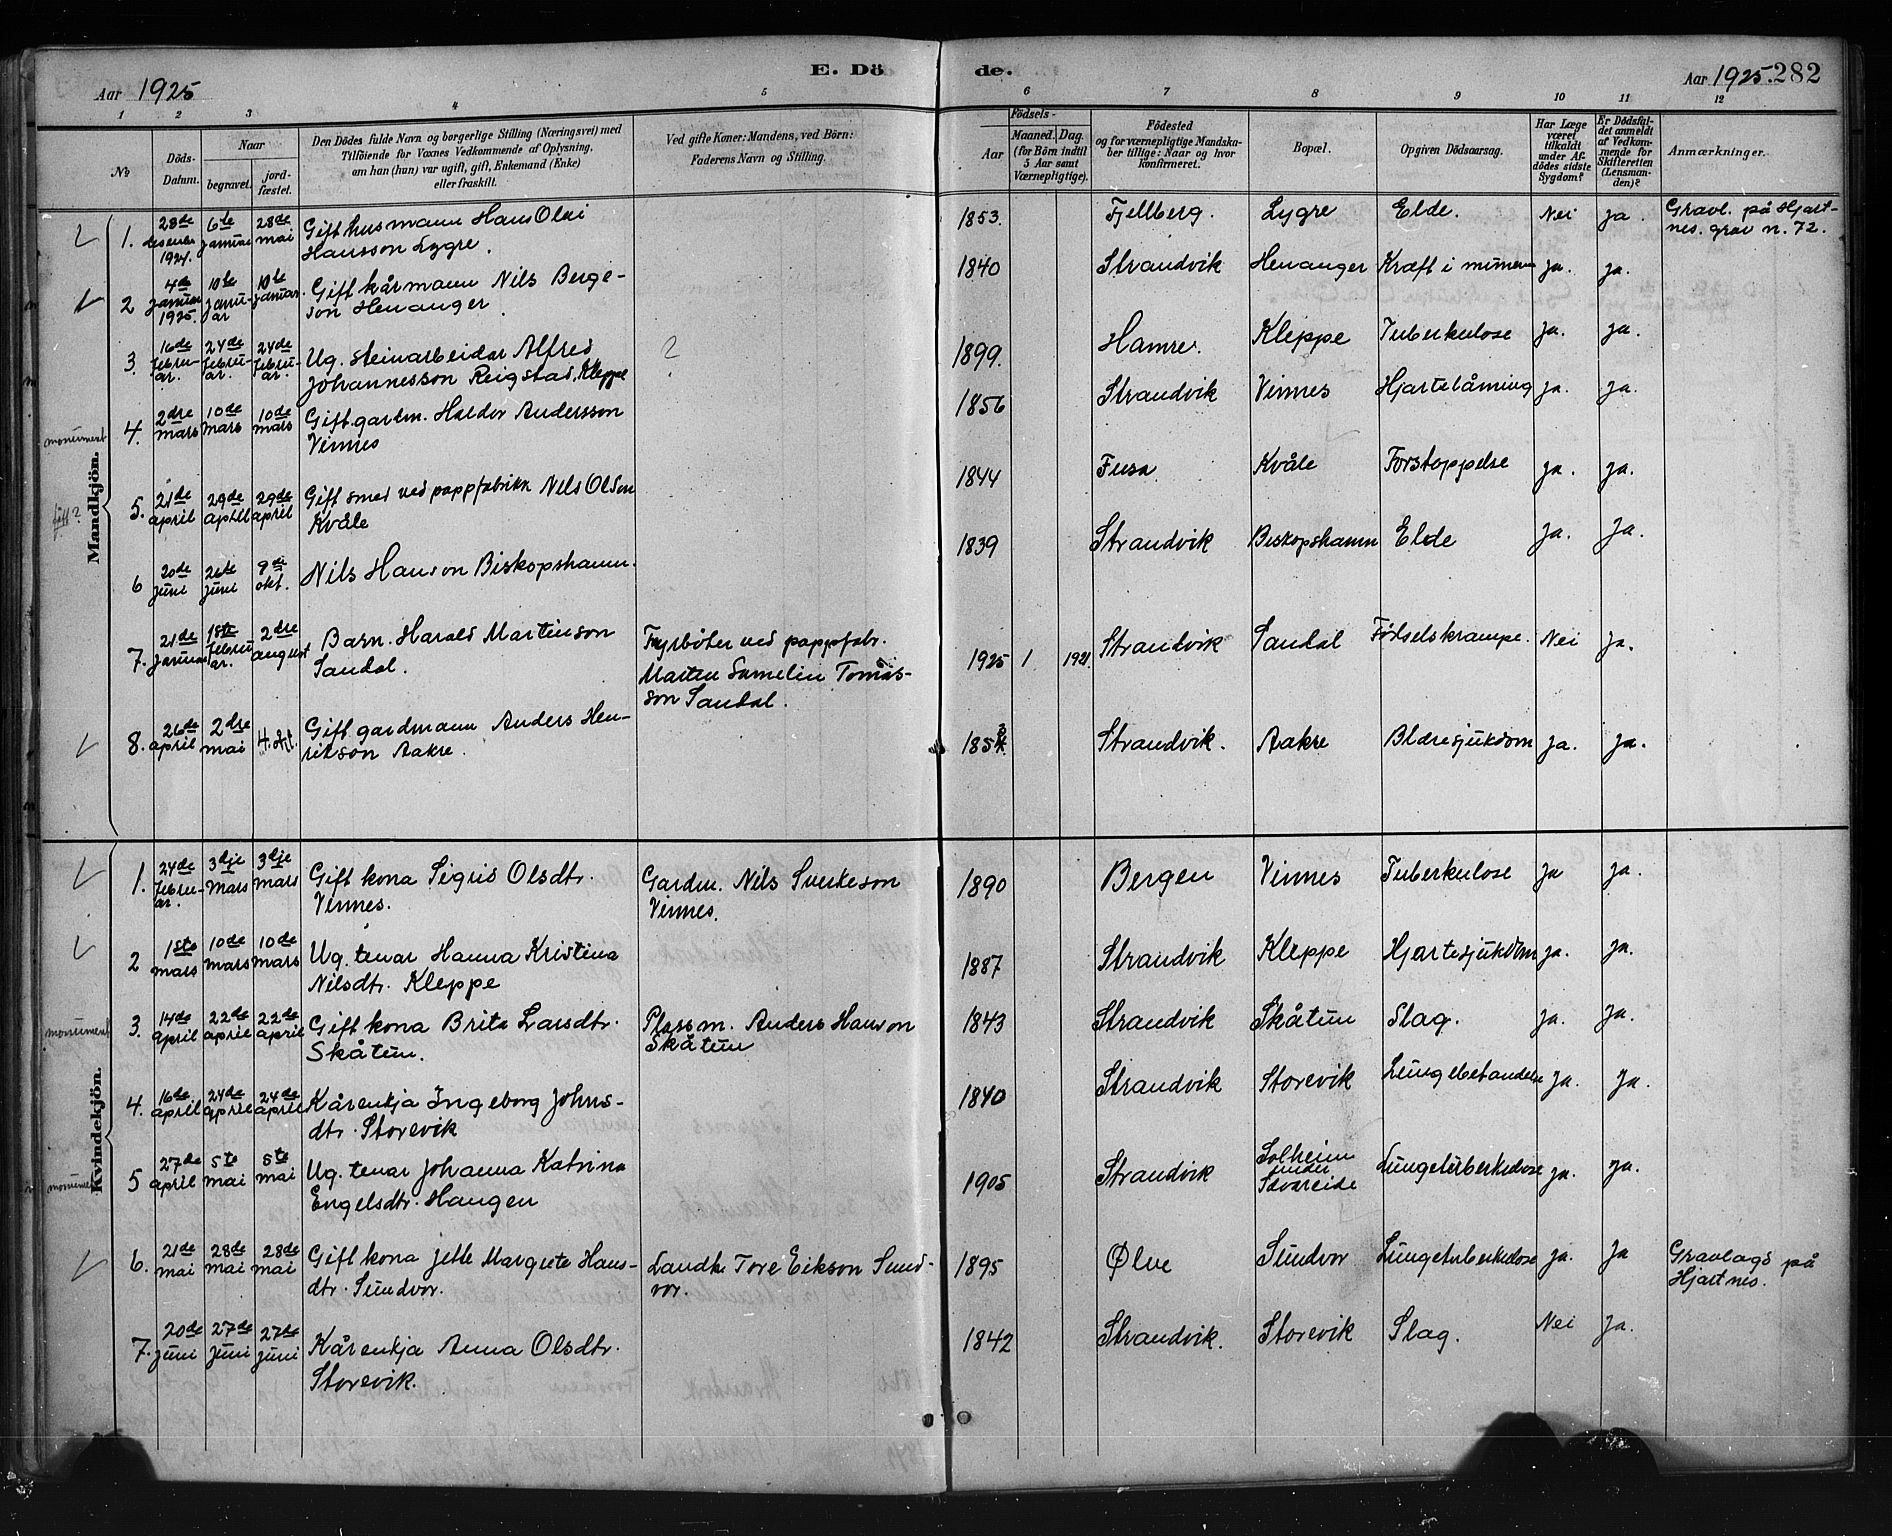 E. Døde.
Aar 1925
Aar 1925. 282
1 2 3 4 5 6 7 8 9 10 11 12
№
Döds-Datum.
Naar
begravet.
jord-fæstet.
Den Dödes fulde Navn og borgerlige Stilling (Næringsvei) med
Tilföiende for Voxnes Vedkommende af Oplysning,
om han (hun) var ugift, gift, Enkemand (Enke)
eller fraskilt.
Ved gifte Koner: Mandens, ved Börn:
Faderens Navn og Stilling.
Födsels-
Aar
Maaned. Dag.
(for Börn indtil
5 Aar samt
Værnepligtige).
Födested
og for værnepligtige Mandska-
ber tillige: Naar og hvor
konfirmeret.
Bopæl.
Opgiven Dödsaarsag.
Har Læge
været
tilkaldt
under Af-
dödes sidste
Sygdom?
Er Dödsfal-
det anmeldt
af Vedkom-
mende for
Skifteretten
(Lensman-
den)?
Anmærkninger.
Mandkjön.
1. 28de desember 1924. 6te januar 28de mai Gift husmann Hans Olai
Hansson Lygre. 1853. Fjellberg. Lygre Elde. Nei ja. Gravl. på Hjart-
nes. grav n. 72.
2 4de januar 1925. 10de januar 10de januar. Gift kårmann Nils Berge-
son Henanger. 1840 Strandvik Henanger Kræft i munnen ja. ja.
3. 16de februar. 24de februar. 24de februar. Ug. steinarbeidar Alfred
Johannesson Reigstad, Kleppe ? 1899. Hamre. Kleppe Tuberkulose ja. ja.
monument
4. 2dre mars 10de mars 10de mars Gift gardm. Haldor Andersson
Vinnes 1856 Strandvik Vinnes Hjartelåming ja. ja.
gift?
5. 21de april 29de april 29de april Gift smed ved pappfabrikk Nils Olson
Kvåle 1844 Fusa Kvåle Forstoppelse ja. ja.
6 20de juni 26de juni 9de okt. Nils Hanson Biskopshamn. 1839 Strandvik Biskopshamn Elde ja. ja.
7. 21de januar 1ste februar. 2dre august Barn. Harald Martinson
Sandal. Fyrbøter ved pappfabr.
Martin Samelin Tomas-
son Sandal. 1925 1 1921. Strandvik Sandal Fødselskrampe. Nei ja.
8. 26de april 2dre mai 4. okt. Gift gardmann Anders Hen-
rikson Aakre. 1853 Strandvik. Aakre Blæresjukdom ja. ja.
Kvindekjön.
1. 24de februar. 3dje mars 3dje mars Gift kona Sigrid Olsdtr.
Vinnes. Gardm. Nils Sverkeson
Vinnes. 1890 Bergen Vinnes Tuberkulose ja ja.
2 1ste mars 10de mars 10de mars Ug. tenar Hanna Kristina
Nilsdtr. Kleppe 1887 Strandvik Kleppe Hjartesjukdom ja. ja.
monument
3. 14de april 22de april 22de april Gift kona Brita Larsdtr.
Skåtun. Plassm. Anders Hanson
Skåtun 1843 Strandvik Skåtun Slag. ja. ja.
4. 16de april 24de april 24de april Kårenkja Ingeborg Johns-
dtr. Storevik 1840 Strandvik Storevik Lungebetendelse ja. ja.
monument
5 27de april 5te mai 5te mai Ug. tenar Johanna Katrina
Engelsdtr. Haugen 1905 Strandvik Solheim
under
Sævareide Lungetuberkulose ja. ja.
6. 21de mai 28de mai 28de mai Gift kona Jette Margrete Hans-
dtr. Sundvor. Landh. Tore Eikson Sund-
vor. 1895 Ølve Sundvor Lungetuberkulose ja. ja Gravlagd på
Hjartnes.
7. 20de juni 27de juni 27de juni Kårenkja Anna Olsdtr.
Storevik. 1842 Strandvik. Storevik Slag. Nei ja.